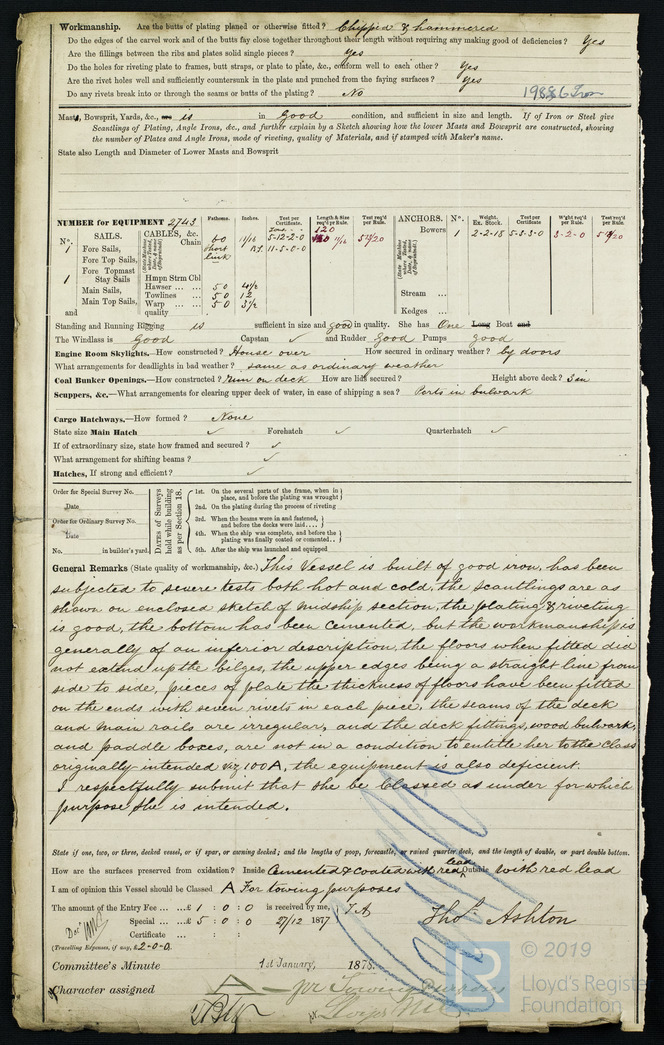 Workmanship. Are the butts of plating planed or otherwise fitted? Chipped & hammered
Do the edges of the carvel work and of the butts fay close together throughout their length without requiring any making good of deficiencies? Yes
Are the fillings between the ribs and plates solid single pieces? Yes
Do the holes for riveting plate to frames, butt straps, or plate to plate, &c., conform well to each other? Yes
Are the rivet holes well and sufficiently countersunk in the plate and punched from the faying surfaces? Yes
Do any rivets break into or through the seams or butts of the plating? No
19886 Iron
Masts, Bowsprit, Yards, &c., are is in Good condition, and sufficient in size and length. If of Iron or Steel give
Scantlings of Plating, Angle Irons, &c., and further explain by a Sketch showing how the lower Masts and Bowsprit are constructed, showing
the number of Plates and Angle Irons, mode of riveting, quality of Materials, and if stamped with Maker's name.
State also Length and Diameter of Lower Masts and Bowsprit
NUMBER for EQUIPMENT 2743
Fathoms. Inches. Test per Certificate. Length & Size req'd pr Rule. Test req'd per Rule. ANCHORS. Nº. Weight. Ex. Stock. Test per Certificate. W'ght req'd per Rule. Test req'd per Rule.
Nº. SAILS. CABLES, &c. Tons 120
Chain 60 11/16 5-12-2-0 11/16 5 12/20 Bowers 1 2-2-18 5-3-3-0 3-2-0
1 Fore Sails, Short B.S. 11-5-0-0
Fore Top Sails, link
(State Machine where Tested, Date, & name of Superintend't.)
Fore Topmast
1 Stay Sails Hmpn Strm Cbl
Main Sails, Hawser 50 4½ Stream
Main Top Sails, Towlines 50 12
Warp 50 3½ Kedges
and quality
Standing and Running Rigging is sufficient in size and good in quality. She has One Long Boat and
The Windlass is Good Capstan ✓ and Rudder Good Pumps good
Engine Room Skylights.—How constructed? House over How secured in ordinary weather? by doors
What arrangements for deadlights in bad weather? same as ordinary weather
Coal Bunker Openings.—How constructed? Rim on deck How are lids secured? Height above deck? 3 in
Scuppers, &c.—What arrangements for clearing upper deck of water, in case of shipping a sea? Ports in bulwark
Cargo Hatchways.—How formed? None
State size Main Hatch ✓ Forehatch ✓ Quarterhatch ✓
If of extraordinary size, state how framed and secured? ✓
What arrangement for shifting beams? ✓
Hatches, If strong and efficient? ✓
Order for Special Survey No.
Date
Order for Ordinary Survey No.
Date
No. in builder's yard.
DATES of Surveys held while building as per Section 18.
1st. On the several parts of the frame, when in place, and before the plating was wrought
2nd. On the plating during the process of riveting
3rd. When the beams were in and fastened, and before the decks were laid....
4th. When the ship was complete, and before the plating was finally coated or cemented..
5th. After the ship was launched and equipped
General Remarks (State quality of workmanship, &c.) This Vessel is built of good iron, has been
subjected to severe tests both hot and cold, the scantlings are as
shown on enclosed sketch of midship section, the plating & riveting
is good, the bottom has been cemented, but the workmanship is
generally of an inferior description, the floors when fitted did
not extend up the bilges, the upper edges being a straight line from
side to side, pieces of plate the thickness of floors have been fitted
on the ends with seven rivets in each piece, the seams of the deck
and main rails are irregular, and the deck fittings, wood bulwark,
and paddle boxes, are not in a condition to entitle her to the Class
originally intended viz 100A, the equipment is also deficient.
I respectfully submit that she be Classed as under for which
purpose she is intended.
State if one, two, or three, decked vessel, or if spar, or awning decked; and the lengths of poop, forecastle, or raised quarter deck, and the length of double, or part double bottom.
How are the surfaces preserved from oxidation? Inside Cemented & coated with red lead Outside with red lead
I am of opinion this Vessel should be Classed A For towing purposes
The amount of the Entry Fee ... £ 1 : 0 : 0 is received by me,
Special ... £ 5 : 0 : 0 27/12 1877 Thos. Ashton
Certificate ... : :
(Travelling Expenses, if any, £2-0-0)
Committee's Minute 1st January, 1878.
Character assigned A for Towing Purposes
© 2019
LR
Lloyd's Register
Foundation